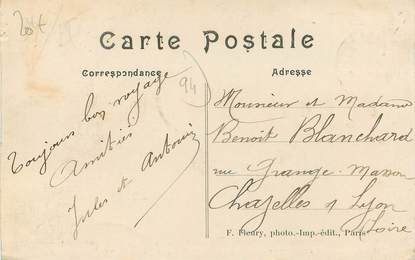 Carte Postale
Correspondance
Adresse
94
Toujours bon voyage
Amitiés
Jules et Antonin
Monsieur et Madame
Benoit Blanchard
rue Grange Masson
Chazelles s Lyon
Loire
F. Fleury, photo.-Imp.-édit., Paris